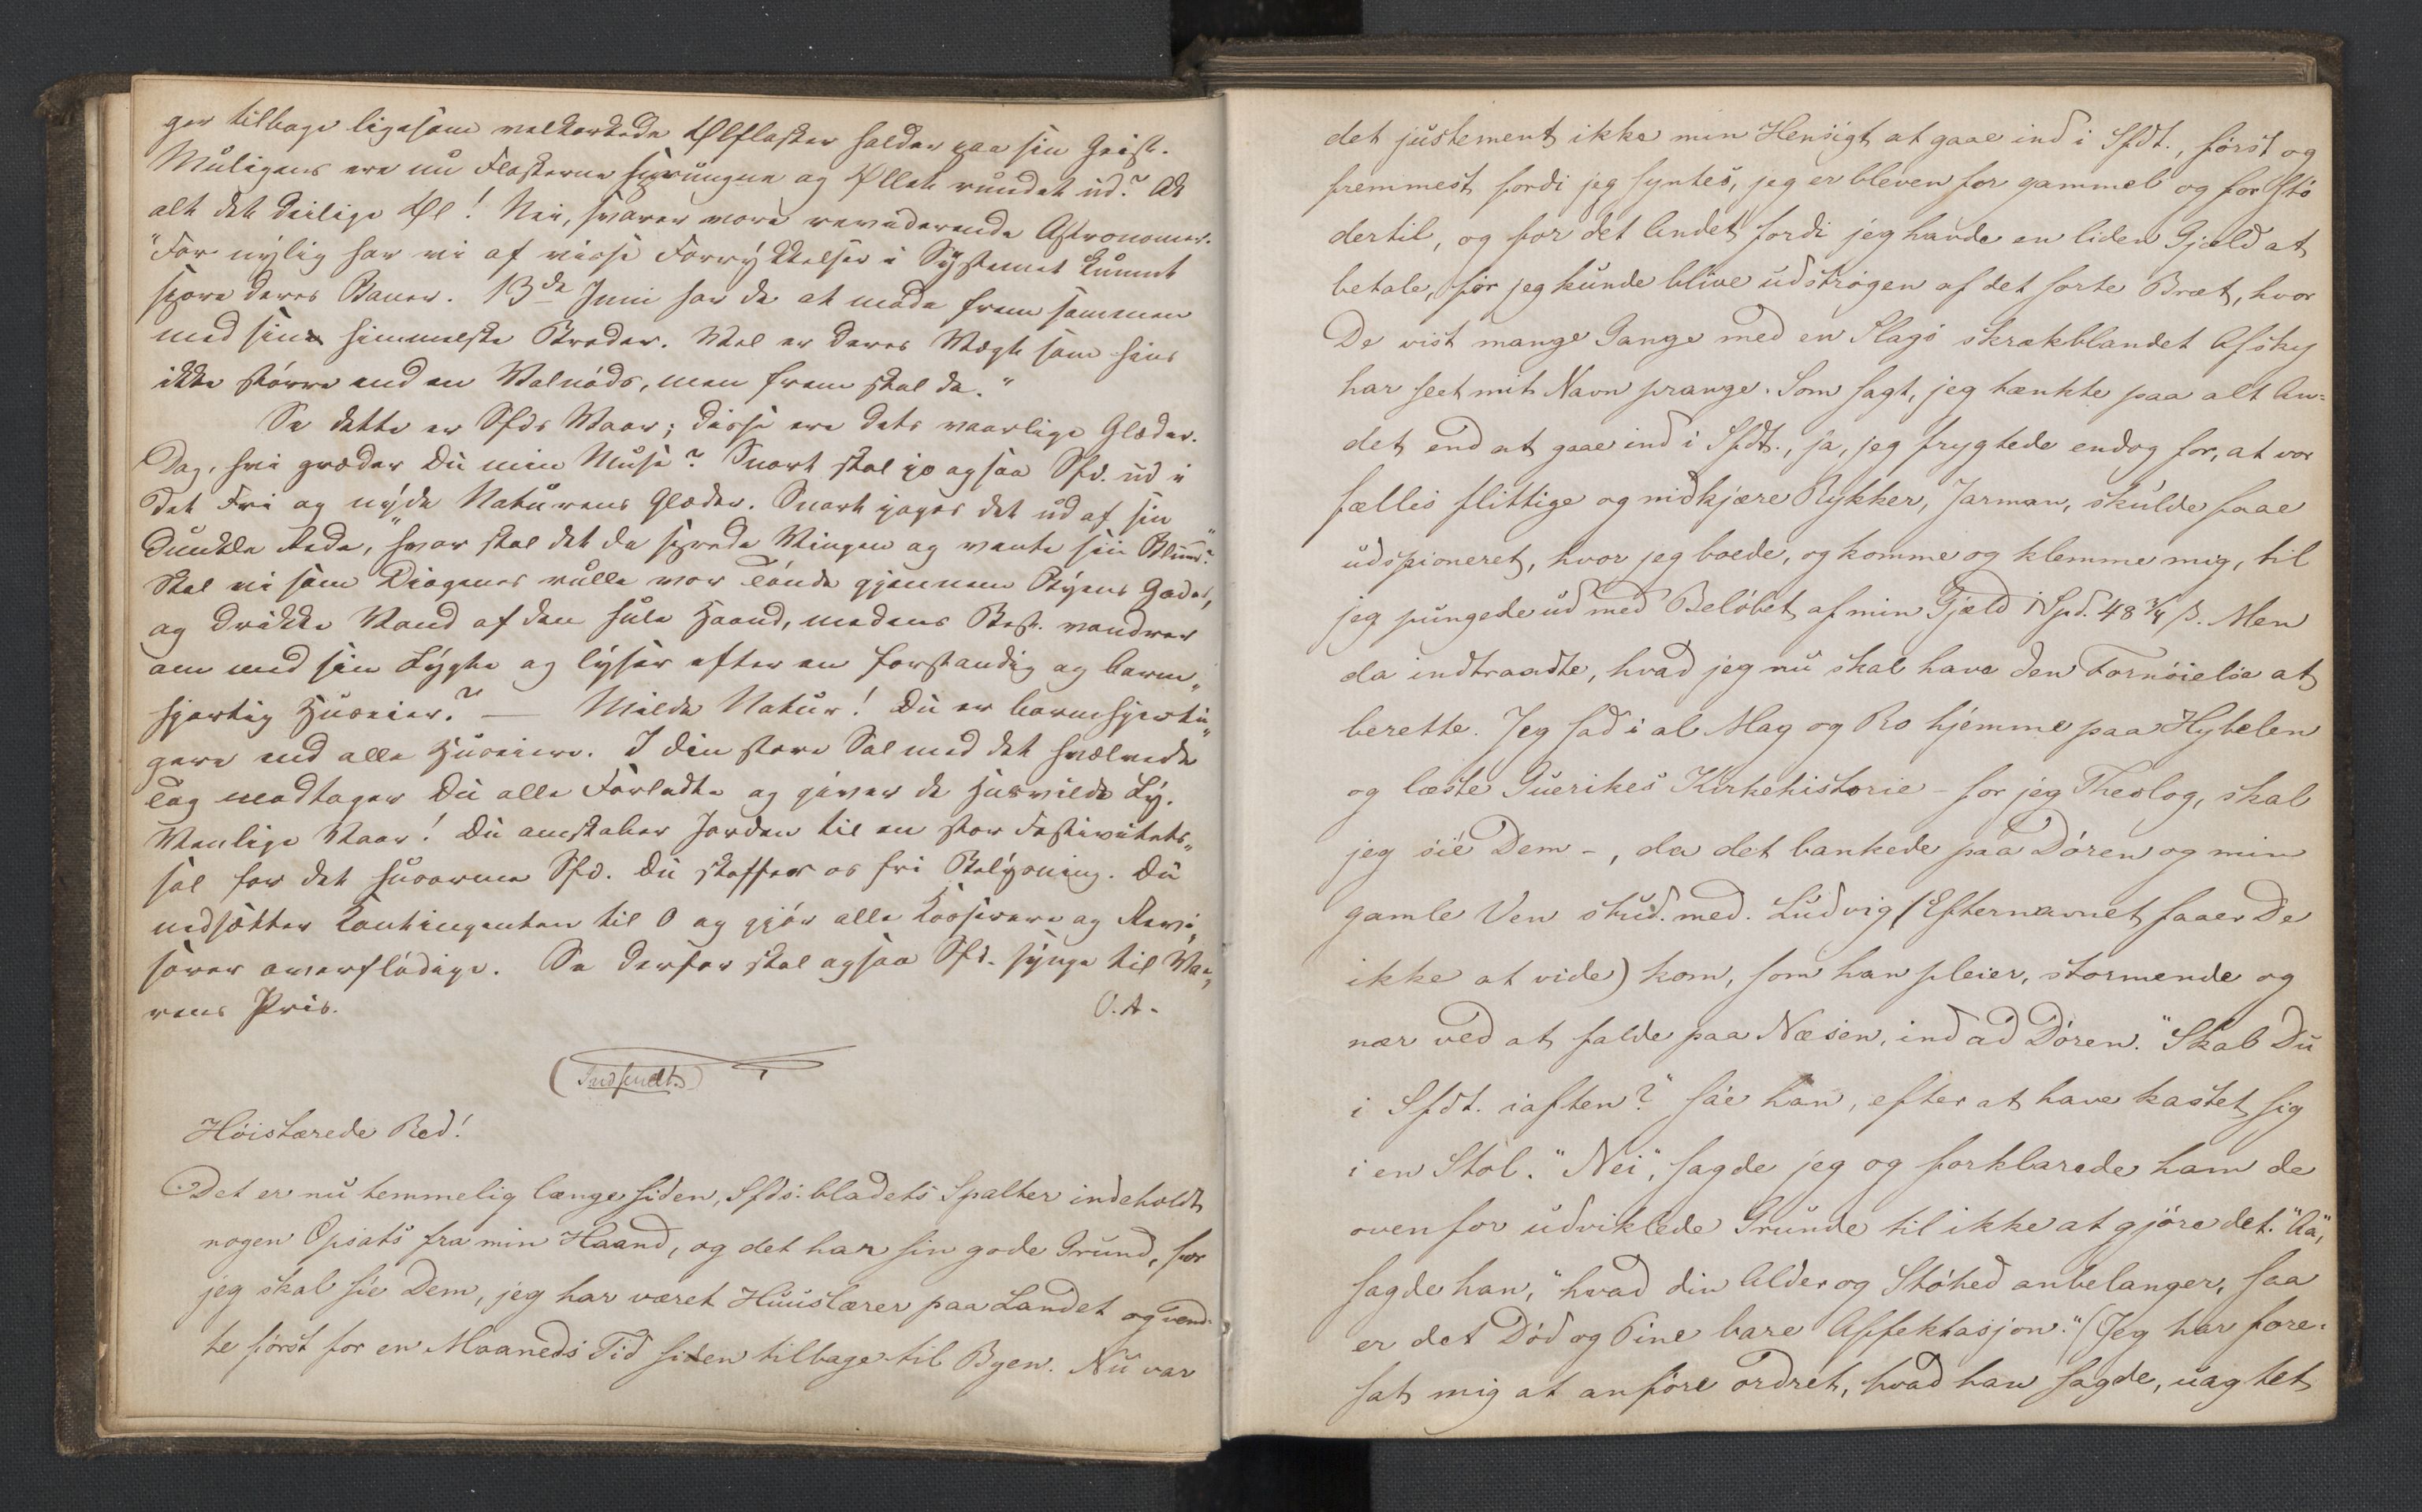 ger tilbage ligesom velkorkede Ølflasker holder paa sin Geist.
Muligens ere nu Flaskerne sprungne og Øllet rundet ud? Ak
alt det deilige Øl! Nei, svarer vore reviderende Astronomer.
"For nylig har vi af visse Forrykkelser i Systemet kunnet
spore deres Baner. 13de Juni har de at møde frem sammen
med sine himmelske Brødre. Vel er deres Vægt som hins
ikke større end en Valnøds, men frem skal de."
Se dette er Sfds Vaar; disse ere dets vaarlige Glæder.
Dog, hvi græder Du min Muse? Snart skal jo ogsaa Sfd. ud i
det Fri og nyde Naturens Glæder. Snart jages det ud af sin
dunkle Rede, "hvor skal det da sprede Vingen og vente sin Blund"?
Skal vi som Diogenes rulle vor Tønde gjennem Byens Gader,
og drikke Vand af den hule Haand, medens Best. vandrer
om med sin Lygte og lyser efter en forstandig og barm„
hjertig Huseier? — Milde Natur! Du er barmhjerti„
gere end alle Huseiere. I din store Sal med det hvælvede
Tag modtager Du alle Forladte og giver de husvilde Ly.
Venlige Vaar! Du omskaber Jorden til en stor Festivitets„
sal for det husarme Sfd. Du skaffer os fri Belysning. Du
nedsætter Kontingenten til 0 og gjør alle Kasserere og Revi„
sorer overflødige. Se derfor skal ogsaa Sfd. synge til Vaa„
rens Pris. O. A.
(Indsendt.)
Høistærede Red!
Det er nu temmelig længe siden, Sfds: bladets Spalter indeholdt
nogen Opsats fra min Haand, og det har sin gode Grund, for
jeg skal sie Dem, jeg har været Huuslærer paa Landet og vend-
te først for en Maaneds Tid siden tilbage til Byen. Nu var
det justement ikke min Hensigt at gaae ind i Sfdt., først og
fremmest fordi jeg syntes, jeg er bleven for gammel og for stø
dertil, og for det Andet fordi jeg havde en liden Gjæld at
betale, før jeg kunde blive udstrøgen af det sorte Bræt, hvor
De vist mange Gange med en Slags skrækblandet Afsky
har seet mit Navn prange. Som sagt, jeg tænkte paa alt An=
det end at gaae ind i Sfdt., ja, jeg frygtede endog for, at vor
fælles flittige og nidkjære Rykker, Jarman, skulde faae
udspioneret, hvor jeg boede, og komme og klemme mig, til
jeg pungede ud med Beløbet af min Gjæld 1 Spd. 48 3/4 ß. Men
da indtraadte, hvad jeg nu skal have den Fornøielse at
berette. Jeg sad i al Mag og Ro hjemme paa Hybelen
og læste Guerikes Kirkehistorie – for jeg Theolog, skal
jeg sie Dem –, da det bankede paa Døren og min
gamle Ven stud. med. Ludvig (Efternavnet faaer De
ikke at vide) kom, som han pleier, stormende og
nær ved at falde paa Næsen, ind ad Døren. "Skal Du
i Sfdt. iaften?" sae han, efter at have kastet sig
i en Stol. "Nei", sagde jeg og forklarede ham de
ovenfor udviklede Grunde til ikke at gjøre det. "Aa",
sagde han, "hvad din Alder og Støhed anbelanger, saa
er det Død og Pine bare Affektasjon." (Jeg har fore-
sat mig at anføre ordret, hvad han sagde, uagtet